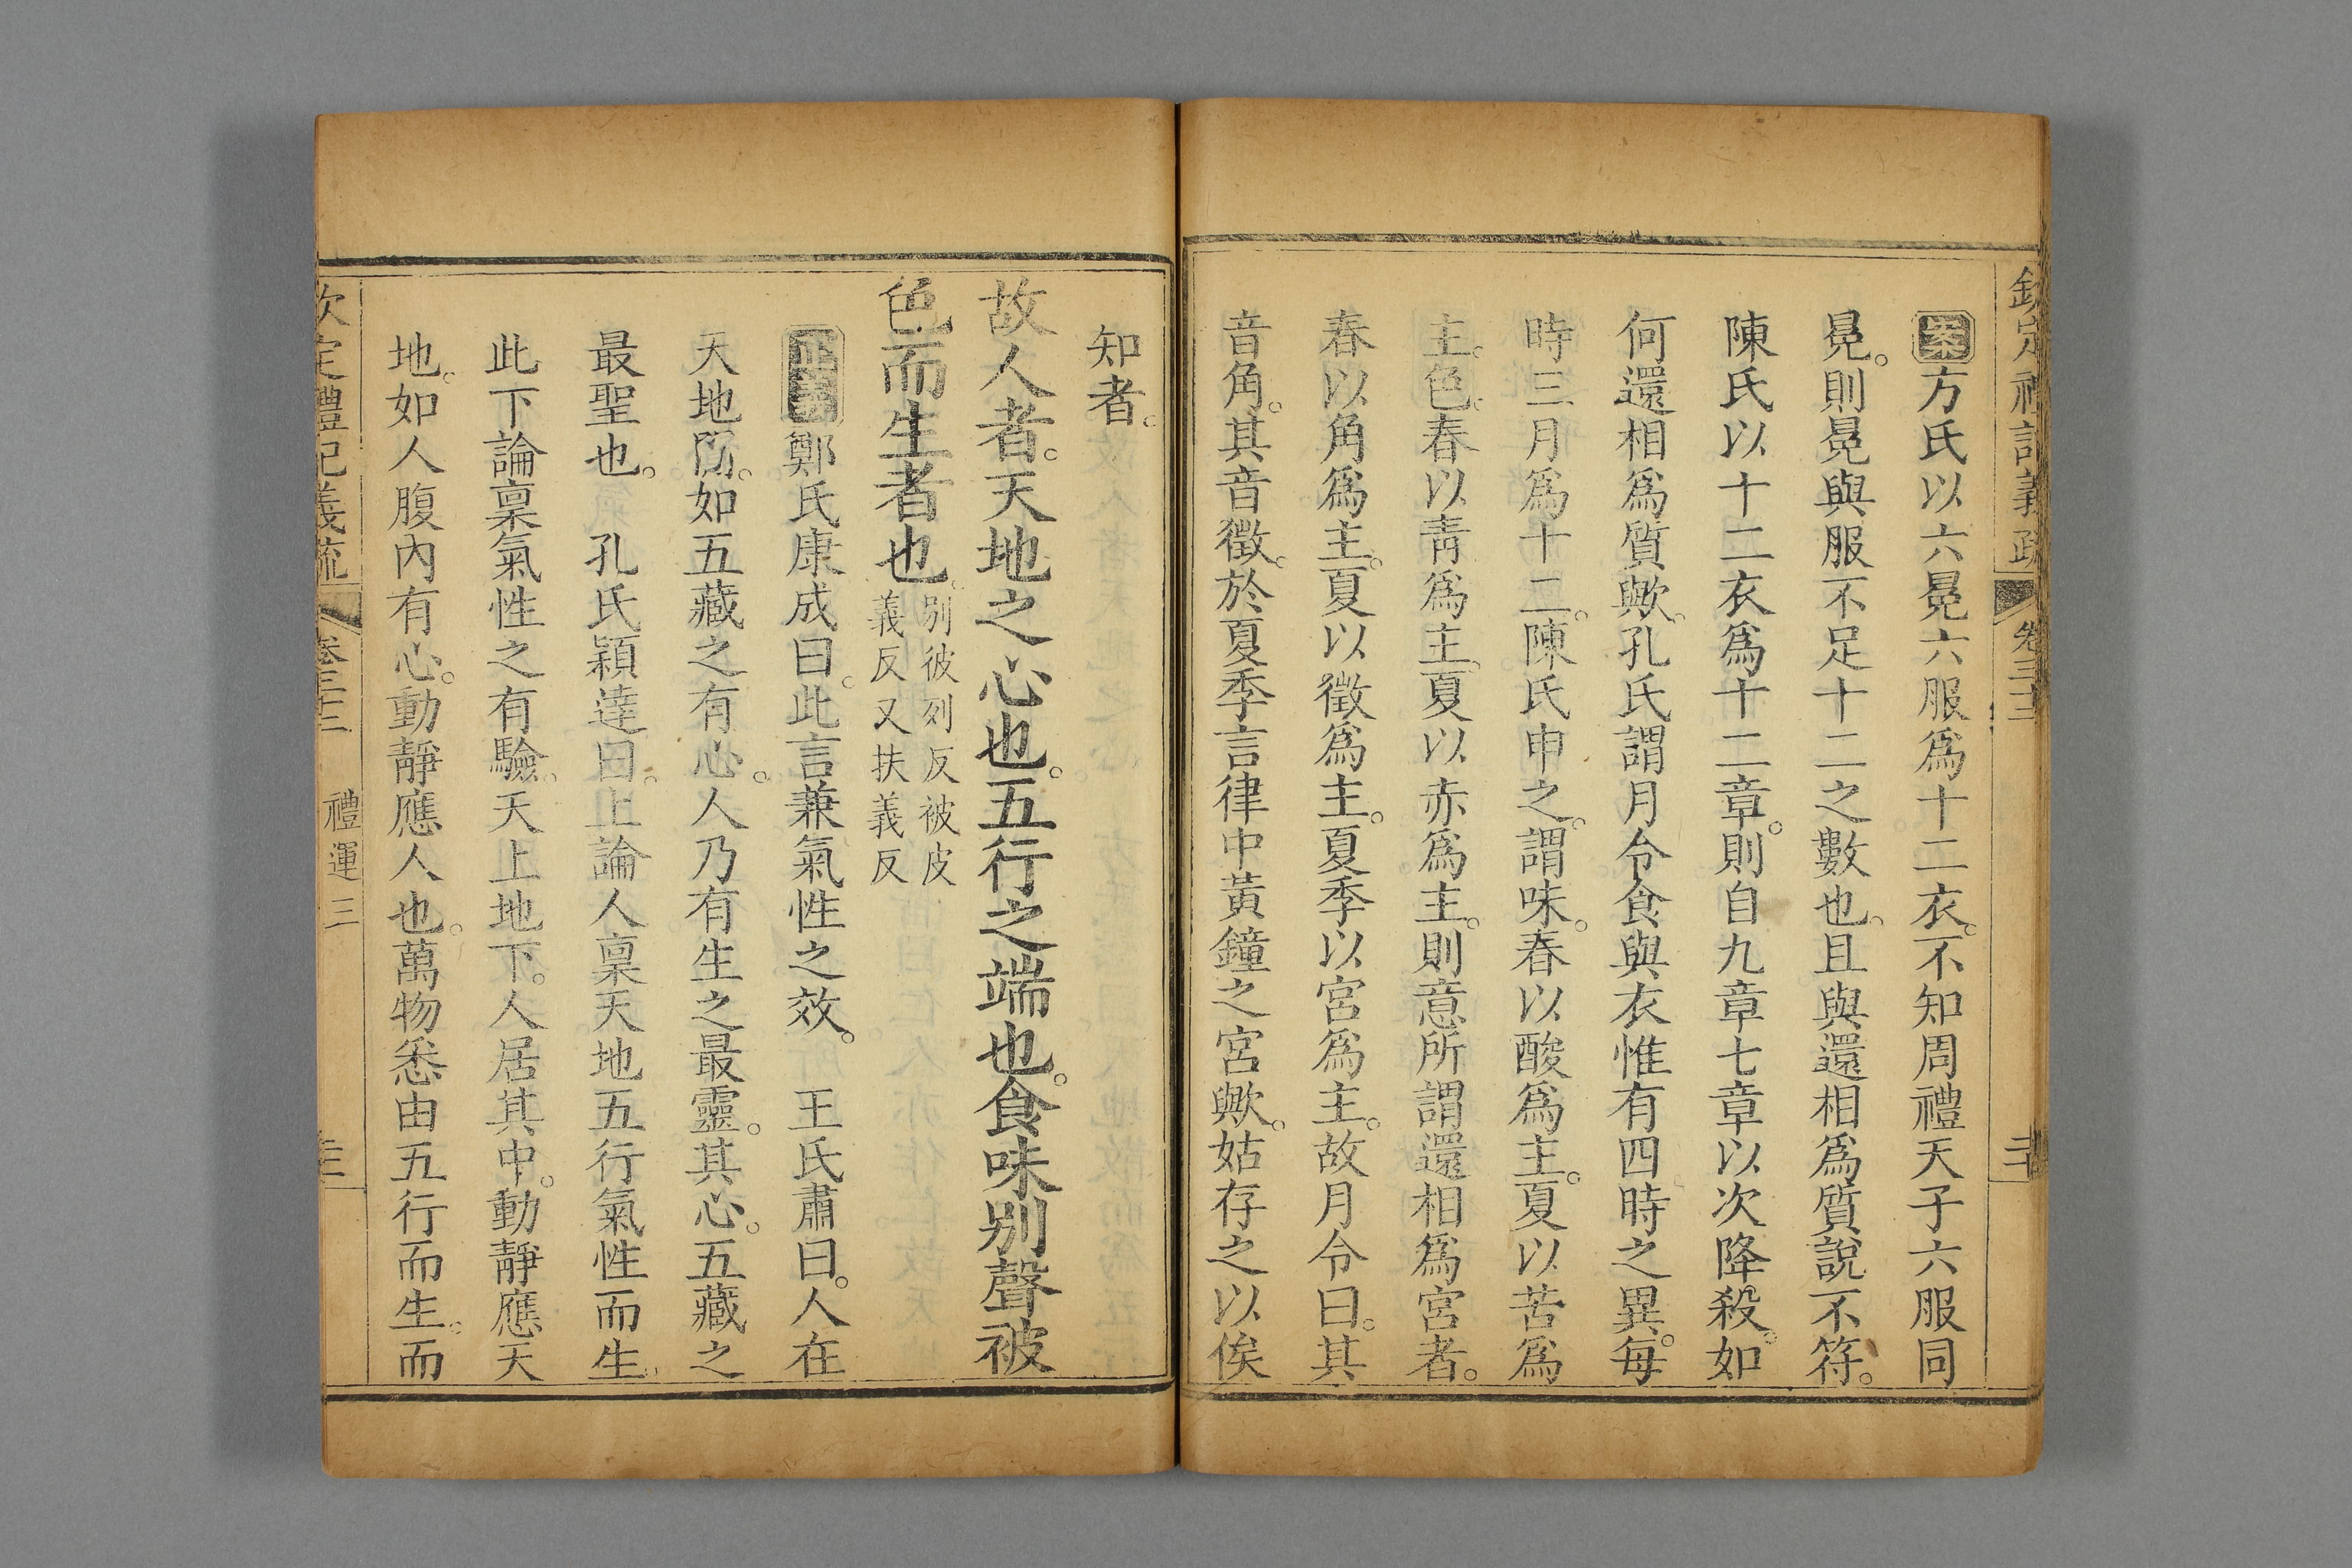 欽定禮記義疏 卷三十二
案方氏以六冕六服爲十二衣。不知周禮天子六服同
冕。則冕與服不足十二之數也。且與還相爲質說不符。
陳氏以十二衣爲十二章。則自九章七章以次降殺。如
何還相爲質歟。孔氏謂月令食與衣惟有四時之異。每
時三月爲十二。陳氏申之。謂味。春以酸爲主。夏以苦爲
主。色。春以靑爲主。夏以赤爲主。則意所謂還相爲宮者。
春以角爲主。夏以徵爲主。夏季以宮爲主。故月令曰。其
音角。其音徵。於夏季言律中黃鐘之宮歟。姑存之以俟
知者。
故人者。天地之心也。五行之端也。食味別聲被
色而生者也。別彼列反被皮
義反又扶義反
正義鄭氏康成曰。此言兼氣性之效。 王氏肅曰。人在
天地閒。如五藏之有心。人乃有生之最靈。其心。五藏之
最聖也。 孔氏穎達曰。上論人稟天地五行氣性而生。
此下論稟氣性之有驗。天上地下。人居其中。動靜應天
地。如人腹內有心。動靜應人也。萬物悉由五行而生。而
欽定禮記義疏 卷三十二 禮運 三